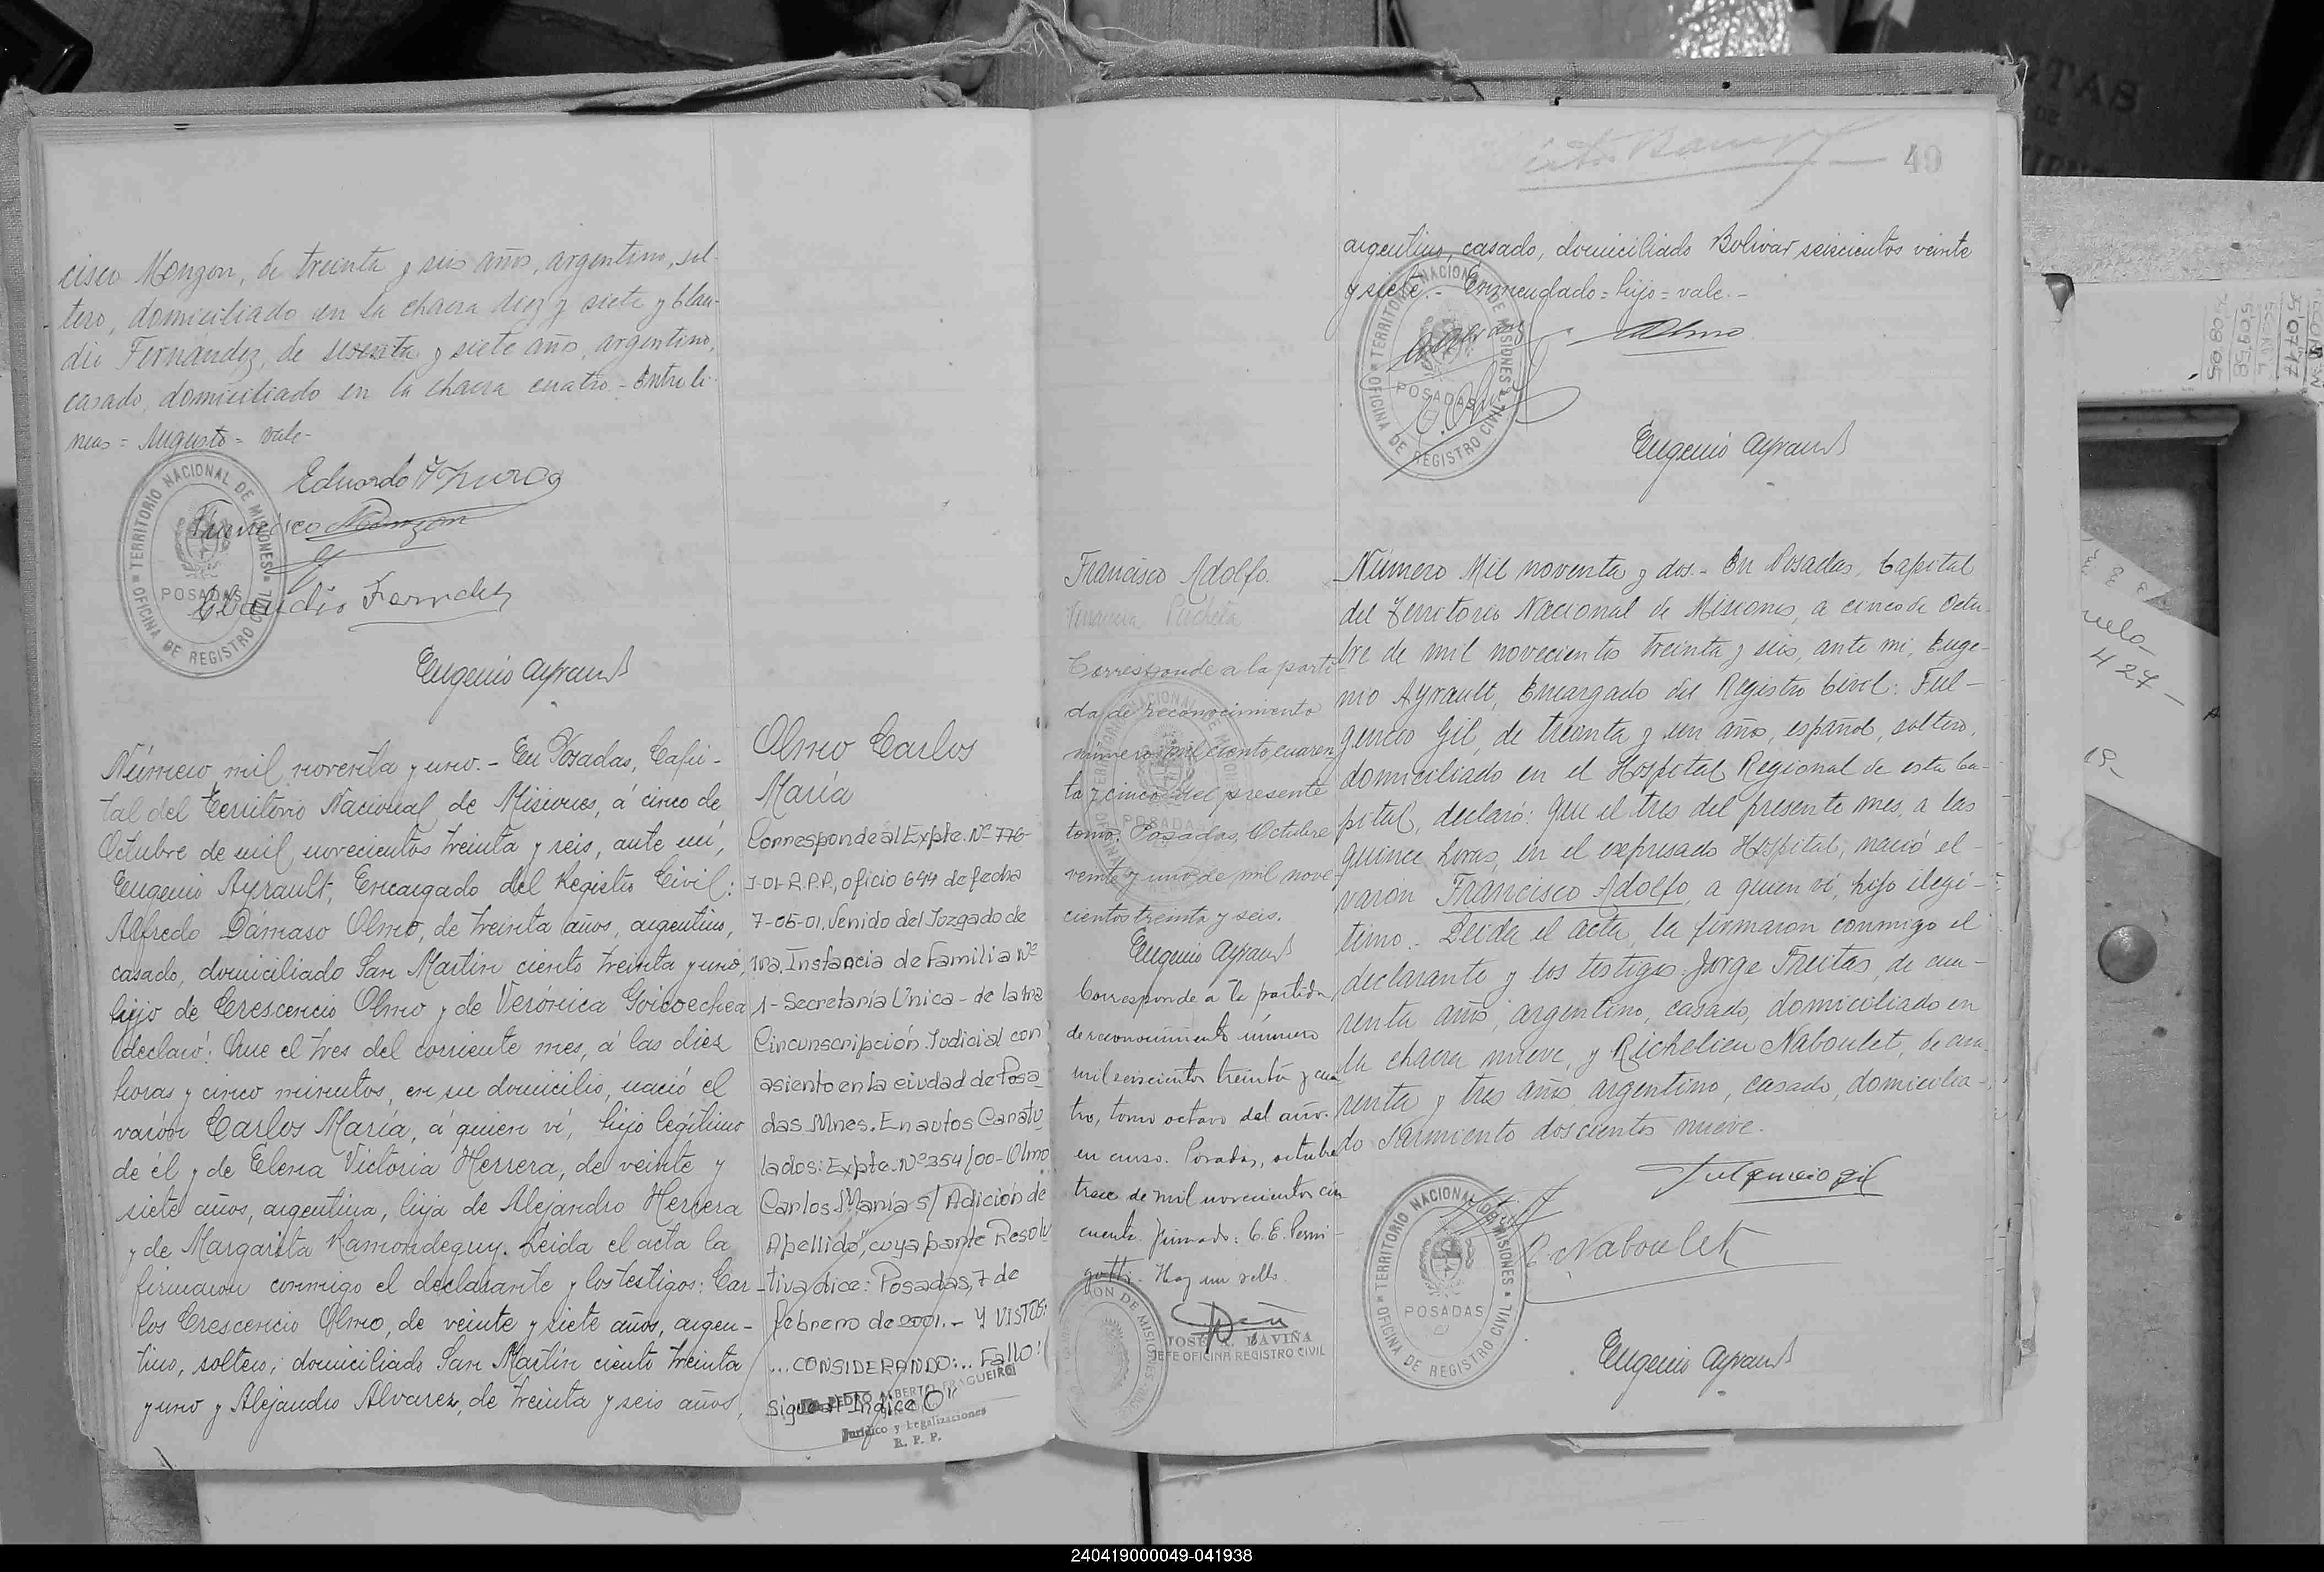 cisco Monzon, de treinta y seis años, argentino, sol-
tero, domiciliado en la chacra diez y siete y Clau-
dio Fernández, de sesenta y siete años, argentino,
casado, domiciliado en la chacra cuatro - Entreli-
neas = Augusto = vale -
Eduardo
Francisco Monzon
Claudio Fernandez
TERRITORIO NACIONAL DE MISIONES
POSADAS
OFICINA DE REGISTRO CIVIL
Eugenio Ayrault
Número mil noventa y uno. - En Posadas, Capi-
tal del Territorio Nacional de Misiones, á cinco de
Octubre de mil novecientos treinta y seis, ante mí,
Eugenio Ayrault, Encargado del Registro Civil:
Alfredo Dámaso Olmo, de treinta años, argentino,
casado, domiciliado San Martin ciento treinta y uno,
hijo de Crescencio Olmo y de Verónica Goicoechea
declaró: Que el tres del corriente mes, á las diez
horas y cinco minutos, en su domicilio, nació el
varón Carlos María, á quien ví, hijo legítimo
de él y de Elena Victoria Herrera, de veinte y
siete años, argentina, hija de Alejandro Herrera
y de Margarita Ramondeguy. Leida el acta la
firmaron conmigo el declarante y los testigos: Car-
los Crescencio Olmo, de veinte y siete años, argen-
tino, soltero, domiciliado San Martín ciento treinta
y uno y Alejandro Alvarez, de treinta y seis años,
Olmo Carlos
María
Corresponde al Expte. Nº 776-
J-01-R.P.P., oficio 644 de fecha
7-05-01, Venido del Juzgado de
1ra. Instancia de Familia Nº
1-Secretaría Única - de la 1ra
Circunscripción Judicial con
asiento en la ciudad de Posa
das. Mnes. En autos Caratu
lados: Expte. Nº 354/00 - Olmo
Carlos María S/ Adición de
Apellido", cuya parte Resolu
tiva dice: Posadas, 7 de
febrero de 2001. - Y VISTOS:
...CONSIDERANDO:... Fallo:
Sigue al Indice O"
PEDRO ALBERTO FRAGUEIRO
Jurídico y Legalizaciones
R. P. P.
49
argentino, casado, domiciliado Bolivar seiscientos veinte
y siete. - Enmendado = hijo = vale. -
Olmo
TERRITORIO NACIONAL DE MISIONES
POSADAS
OFICINA DE REGISTRO CIVIL
Eugenio Ayrault
Francisco Adolfo.
Corresponde a la parti-
da de reconocimiento
número mil ciento cuaren
ta y cinco del presente
tomo. Posadas, Octubre
veinte y uno de mil nove-
cientos treinta y seis.
Eugenio Ayrault
Corresponde a la partida
de reconocimiento número
mil seiscientos treinta y cua
tro, tomo octavo del año
en curso. Posadas, octubre
trece de mil novecientos cin
cuenta. firmado: C. E. Permi-
gotti. Hay un sello.
JOSE A. DAVIÑA
JEFE OFICINA REGISTRO CIVIL
Número Mil noventa y dos. - En Posadas, Capital
del Territorio Nacional de Misiones, a cinco de Octu-
bre de mil novecientos treinta y seis, ante mi, Euge-
nio Ayrault, Encargado del Registro Civil: Ful-
gencio Gil, de treinta y un año, español, soltero,
domiciliado en el Hospital Regional de esta Ca-
pital, declaró: Que el tres del presente mes, a las
quince horas, en el expresado Hospital, nació el
varón Francisco Adolfo, a quien ví, hijo ilegí-
timo. - Leida el acta, la firmaron conmigo el
declarante y los testigos: Jorge Freitas, de cua-
renta años, argentino, casado, domiciliado en
la chacra nueve, y Richelieu Naboulet, de cua-
renta y tres años, argentino, casado, domicilia-
do Sarmiento doscientos nueve.
Fulgencio Gil
R. Naboulet
TERRITORIO NACIONAL DE MISIONES
POSADAS
OFICINA DE REGISTRO CIVIL
Eugenio Ayrault
240419000049-041938